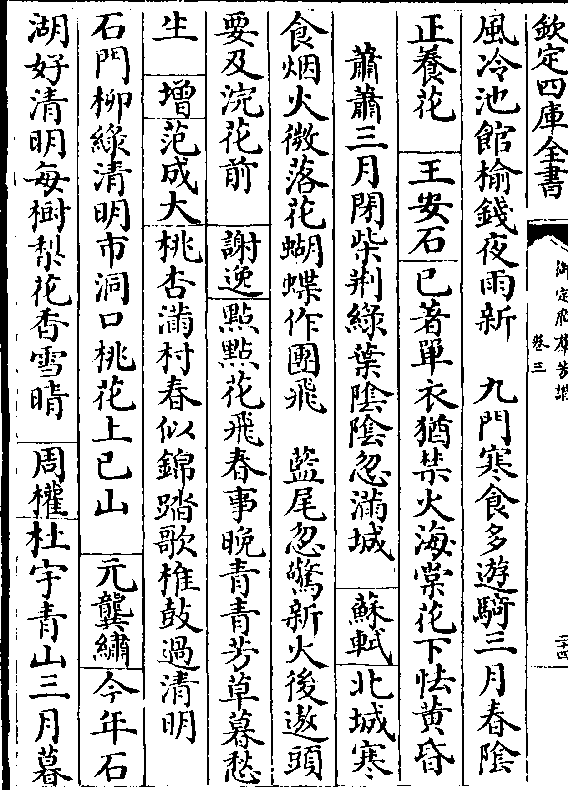 欽定四庫全書
御定月令輯要 卷三 二十四
風冷池館榆錢夜雨新 九門寒食多遊騎三月春陰
正養花 王安石已著單衣猶禁火海棠花下怯黄昏
蕭蕭三月閉柴荆綠葉陰陰忽滿城 蘇軾北城寒
食烟火微落花蝴蝶作團飛 藍尾忽驚新火後遨頭
要及浣花前 謝逸點點花飛春事晚青青芳草暮愁
生 增范成大桃杏滿村春似錦踏歌椎鼓過清明
石門柳綠清明市洞口桃花上巳山 元龔璛今年石
湖好清明每樹梨花香雪晴 周權杜宇青山三月暮